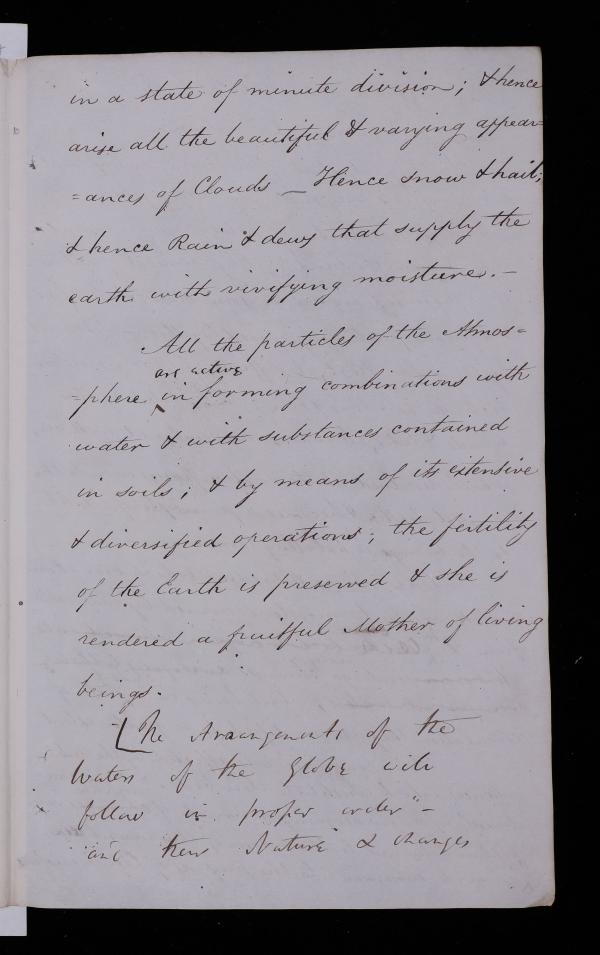 in a state of minute division; & hence
arise all the beautiful & varying appear=
=ances of Clouds _ Hence snow & hail;
& hence Rain & dews that supply the
earth with vivifying moisture. –
All the particles of the Atmos=
are active
=phere in forming combinations with
water & with substances contained
in soils; & by means of its extensive
& diversified operations; the fertility
of the Earth is preserved & she is
rendered a fruitful Mother of living
beings.
[The Arrangements of the
Waters of the Globe will
follow in proper order" –
and their Nature & changes